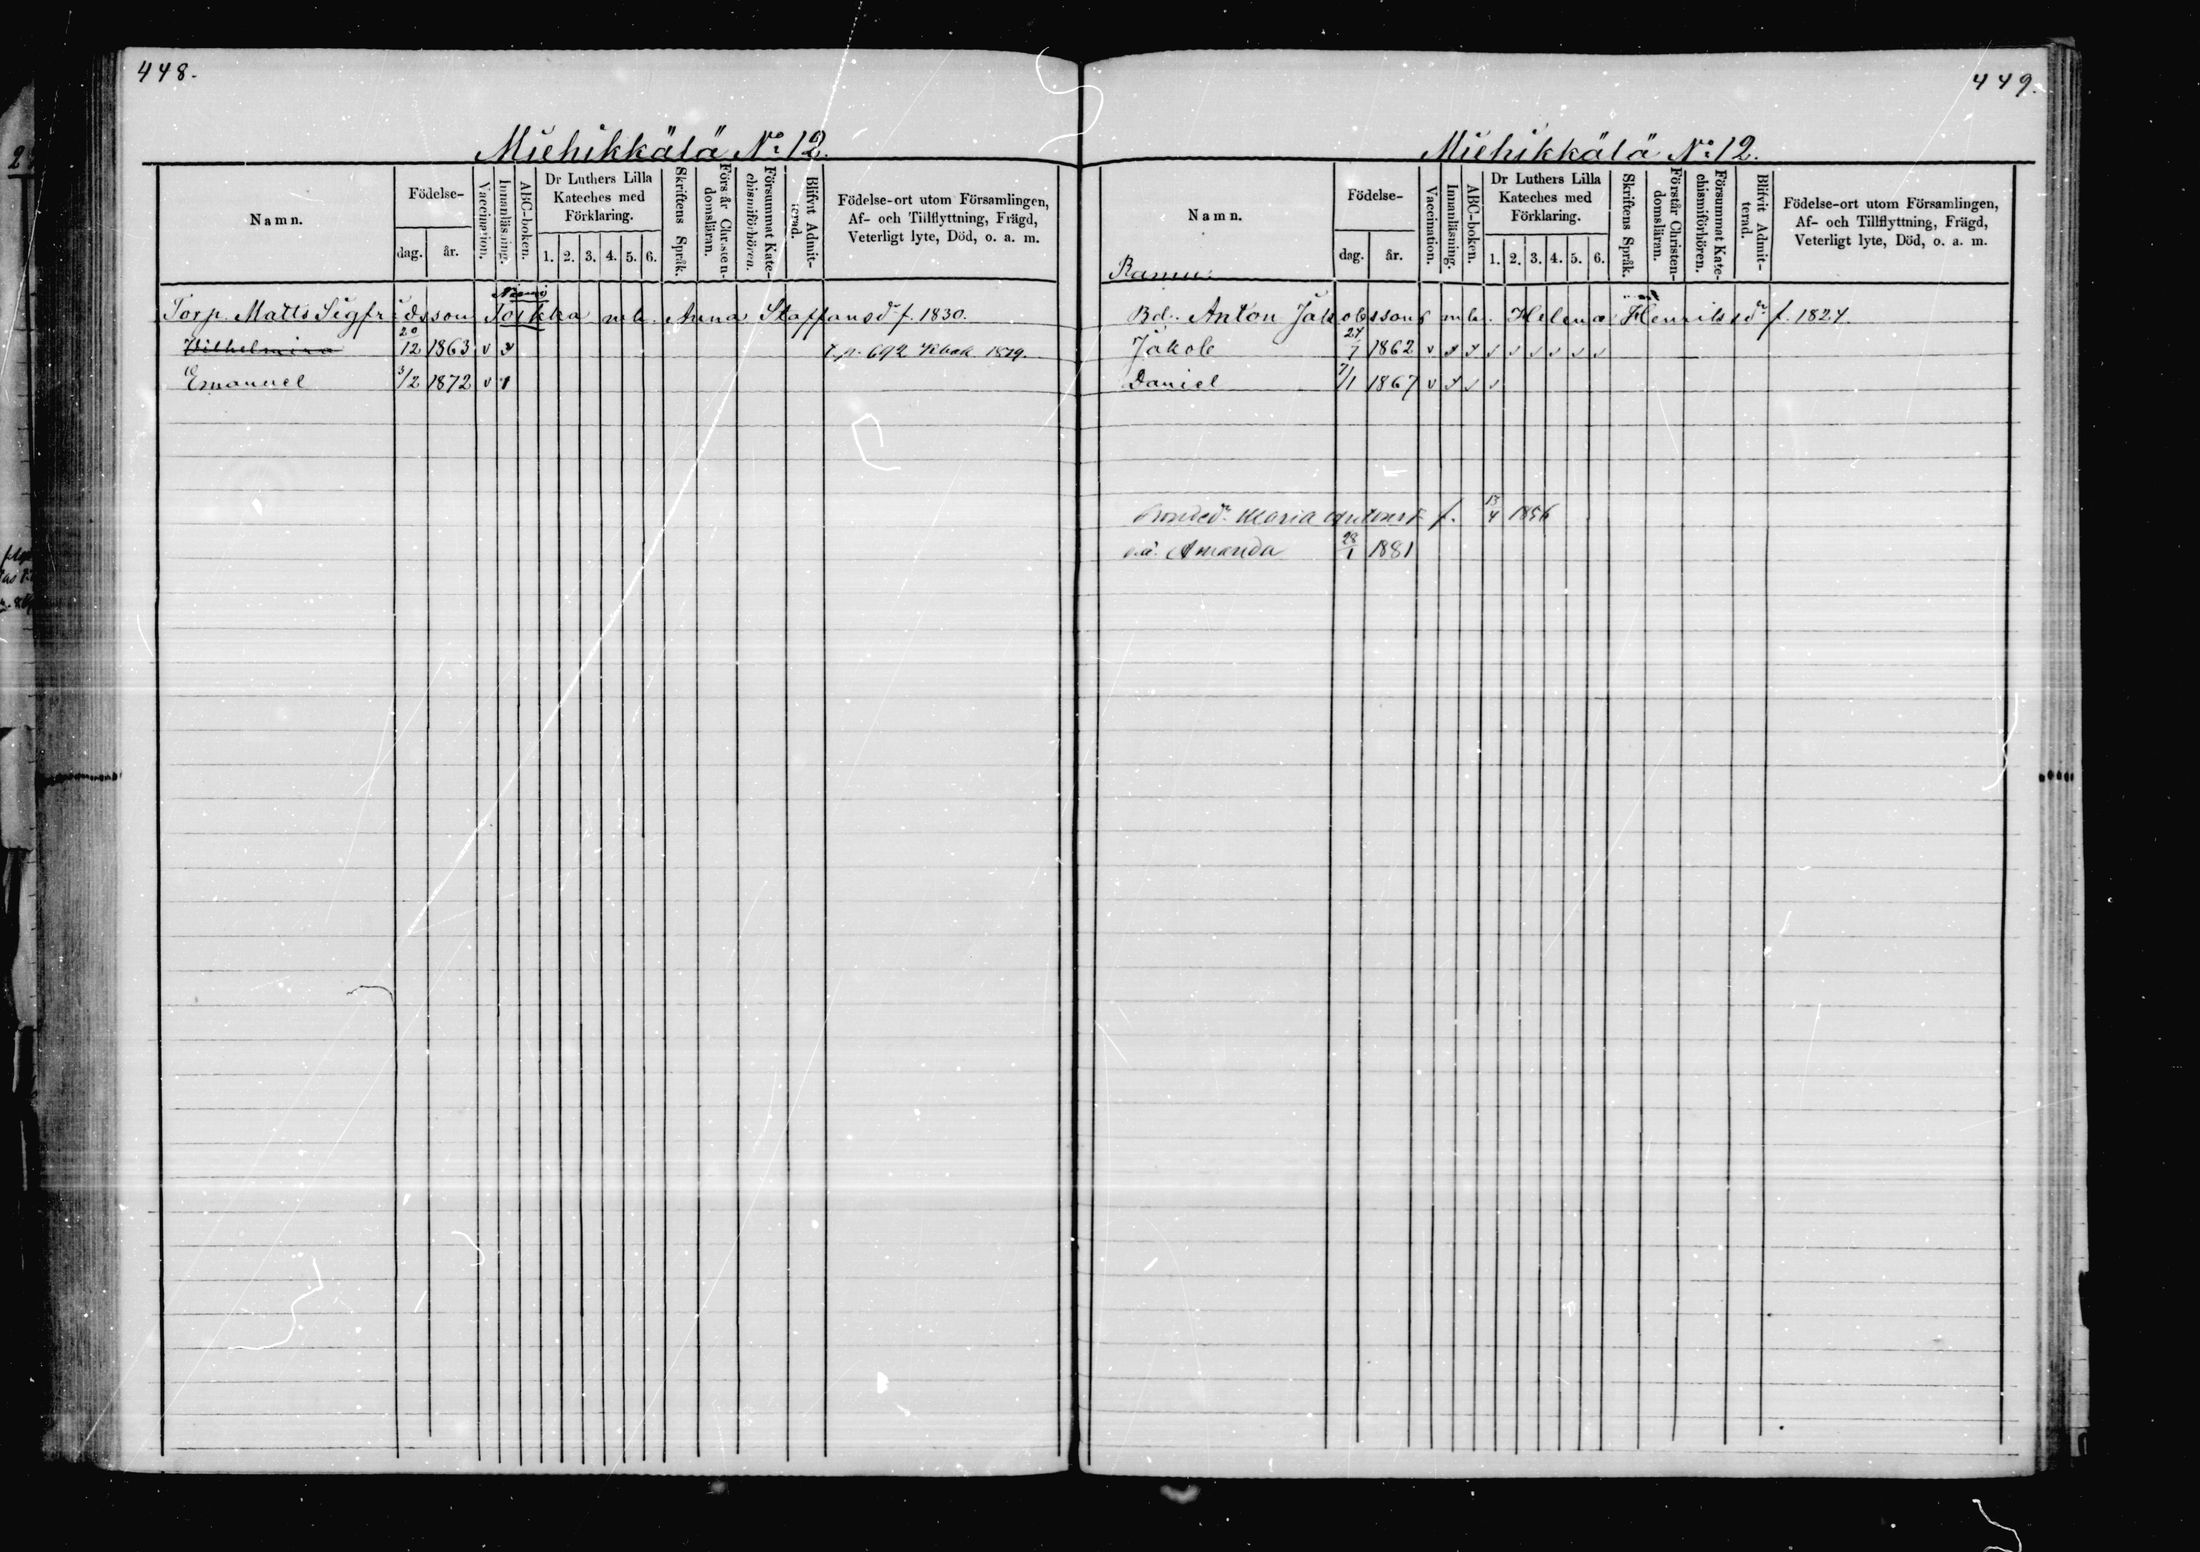 448.
Miehikkälä No 12.
Namn.
Födelse-
dag.
år.
Vaccination.
Innanläsning.
ABC-boken.
Dr Luthers Lilla
Kateches med
Förklaring.
1. 2. 3. 4. 5. 6.
Skriftens Språk.
Förstår Christen-
domsläran.
Försummat Kate-
chismiförhören.
Blifvit Admit-
terad.
Födelse-ort utom Församlingen,
Af- och Tillflyttning, Frägd,
Veterligt lyte, Död, o. a. m.
Torp. Matts Sigfridsson Toikka m. h. Anna Staffansdr f. 1830.
Wilhelmina 20/12 1863 v
p. 692 Kbok 1879.
Emanuel 3/2 1872 v
449.
Miehikkälä No 12.
Namn.
Födelse-
dag.
år.
Vaccination.
Innanläsning.
ABC-boken.
Dr Luthers Lilla
Kateches med
Förklaring.
1. 2. 3. 4. 5. 6.
Skriftens Språk.
Förstår Christen-
domsläran.
Försummat Kate-
chismiförhören.
Blivit Admit-
terad.
Födelse-ort utom Församlingen,
Af- och Tillflyttning, Frägd,
Veterligt lyte, Död, o. a. m.
Bd. Anton Jakobssons m. h. Helena Henriksdr f. 1824.
Jakob 27/7 1862 v
Daniel 7/1 1867 v
Maria f. 13/4 1856
Amanda 28/1 1881